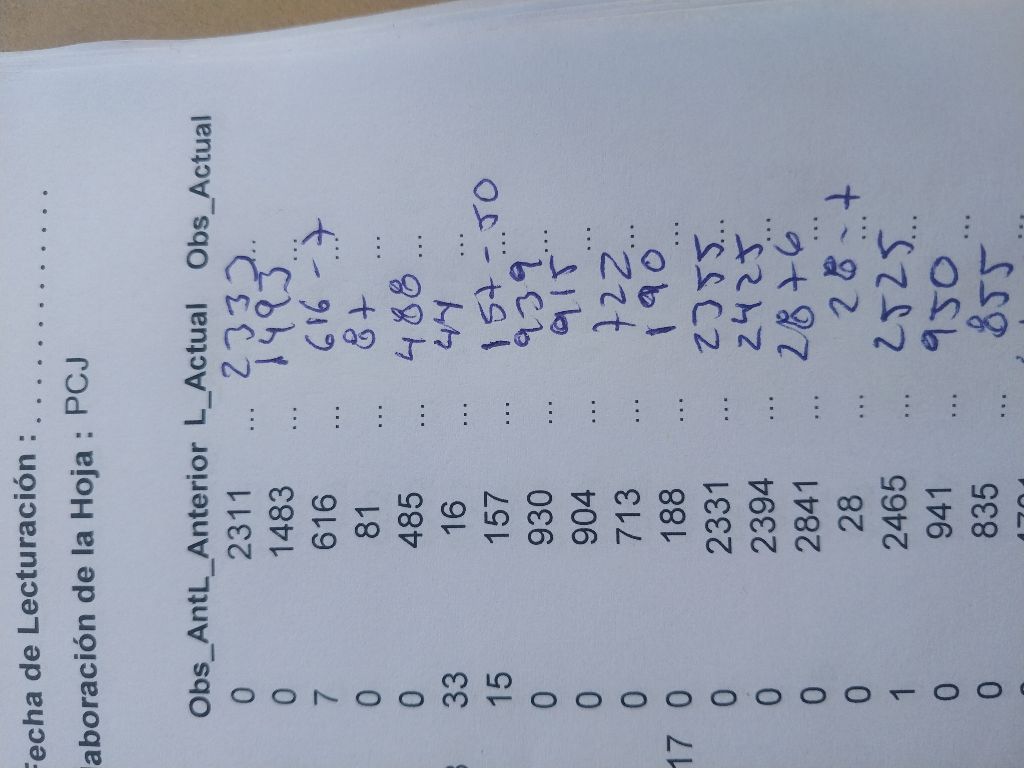 Fecha de Lecturación : ....................
aboración de la Hoja : PCJ
Obs_AntL_Anterior L_Actual Obs_Actual
0 2311 ... 2333 ...
0 1483 ... 1493 ...
7 616 ... 616 - 7 ...
0 81 ... 87 ...
0 485 ... 488 ...
33 16 ... 44 ...
15 157 ... 157 - 50 ...
0 930 ... 939 ...
0 904 ... 915 ...
0 713 ... 722 ...
17 0 188 ... 190 ...
0 2331 ... 2355 ...
0 2394 ... 2425 ...
0 2841 ... 2876 ...
0 28 ... 28 - 7 ...
1 2465 ... 2525 ...
0 941 ... 950 ...
0 835 ... 855 ...